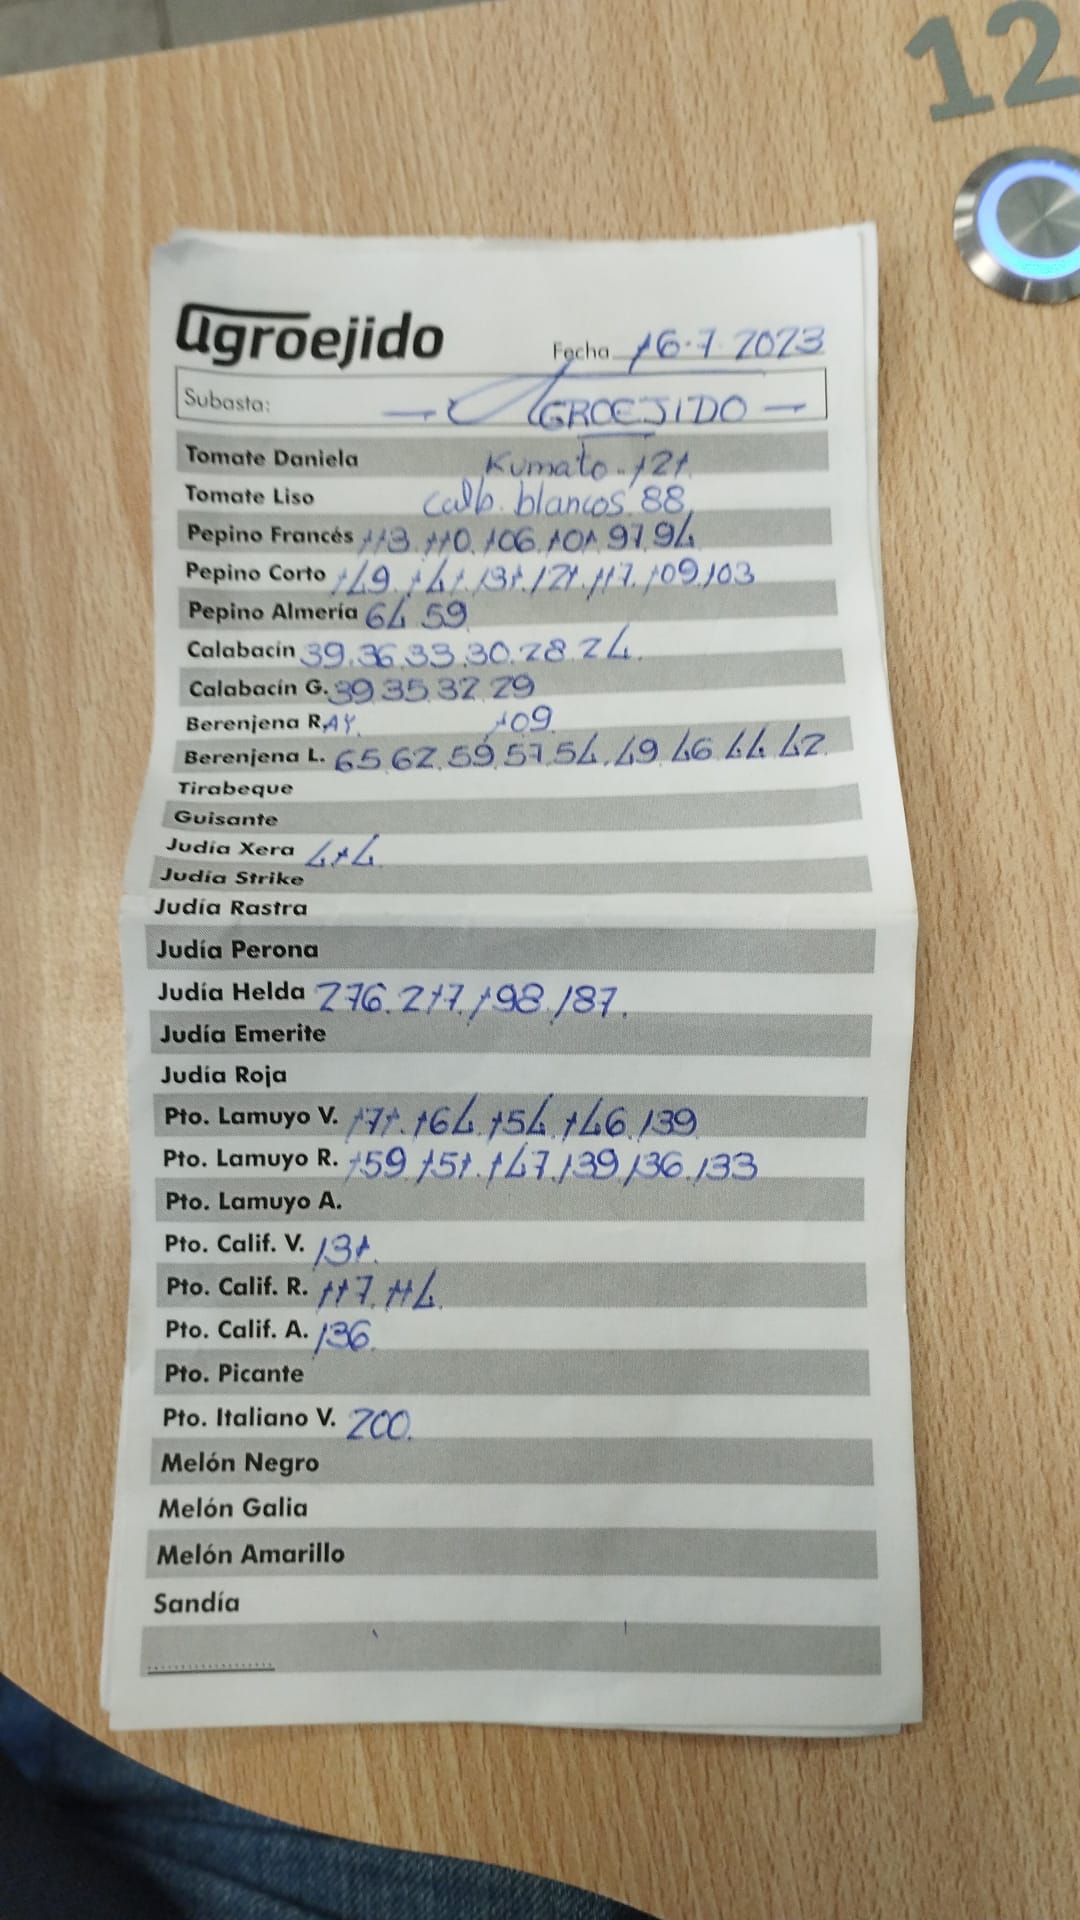 12
agroejido
Fecha 16.7.2023
Subasta: - AGROEJIDO -
Tomate Daniela Kumato. 121.
Tomate Liso Calb. blancos. 88
Pepino Francés 113. 110. 106. 101. 97. 94
Pepino Corto 149. 141. 131. 121. 117. 109. 103
Pepino Almería 64. 59
Calabacín 39. 36. 33. 30. 28. 24.
Calabacín G. 39. 35. 32. 29
Berenjena RAY. 109
Berenjena L. 65. 62. 59. 57. 54. 49. 46. 44. 42
Tirabeque
Guisante
Judía Xera 414
Judía Strike
Judía Rastra
Judía Perona
Judía Helda 276. 217. 198. 187.
Judía Emerite
Judía Roja
Pto. Lamuyo V. 171. 164. 154. 146. 139
Pto. Lamuyo R. 159. 151. 147. 139. 136. 133
Pto. Lamuyo A.
Pto. Calif. V. 131.
Pto. Calif. R. 117. 114.
Pto. Calif. A. 136.
Pto. Picante
Pto. Italiano V. 200.
Melón Negro
Melón Galia
Melón Amarillo
Sandía